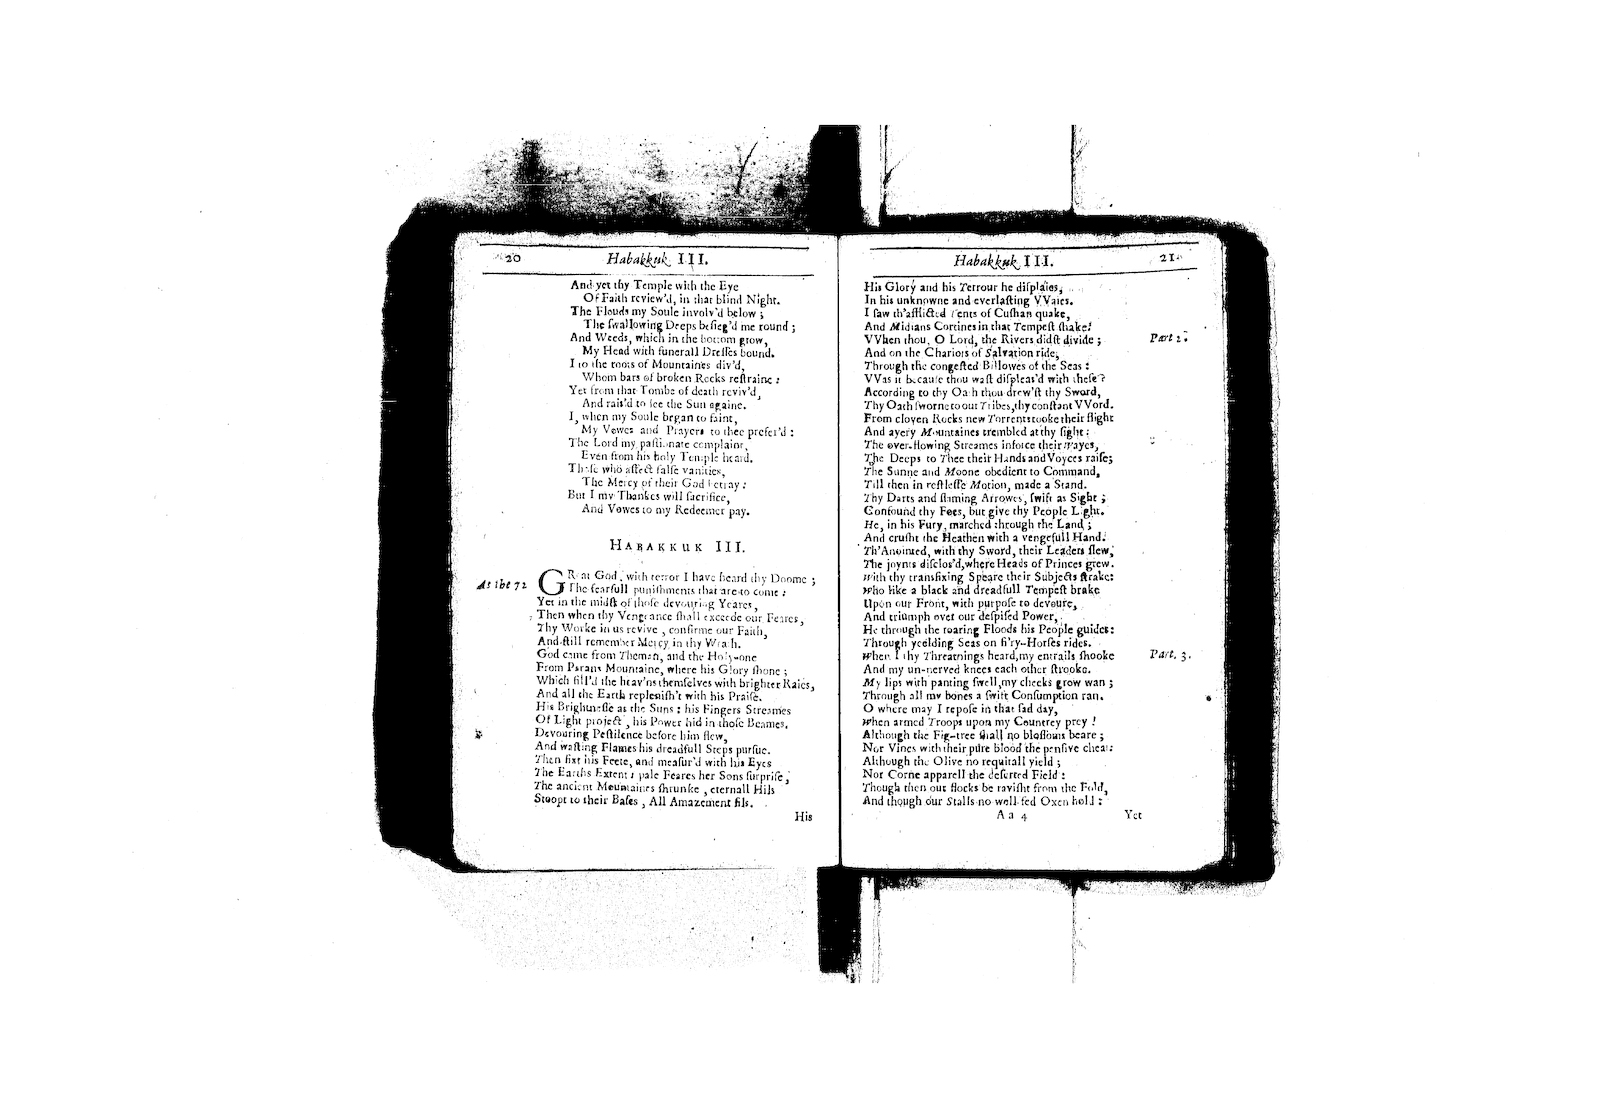 20
Habakkuk III.
And yet thy Temple with the Eye
Of Faith review'd, in that blind Night.
The Flouds my Soule involv'd below ;
The ſwallowing Deeps beſieg'd me round ;
And Weeds, which in the bottom grow,
My Head with funerall Dreſſes bound.
I to the roots of Mountaines div'd,
Whom bars of broken Rocks reſtraine :
Yet from that Tombe of death reviv'd,
And rais'd to ſee the Sun againe.
I, when my Soule began to faint,
My Vowes and Prayers to thee prefer'd :
The Lord my paſſionate complaint,
Even from his holy Temple heard.
Thoſe who affect falſe vanities,
The Mercy of their God betray :
But I my Thankes will ſacrifice,
And Vowes to my Redeemer pay.
HABAKKUK III.
As the 72
GReat God, with terror I have heard thy Doome ;
The fearfull puniſhments that are to come :
Yet in the midſt of thoſe devouring Yeares,
Then when thy Vengeance ſhall exceede our Feares,
Thy Worke in us revive, confirme our Faith,
And ſtill remember Mercy in thy Wrath.
God came from Theman, and the Holy-one
From Parans Mountaine, where his Glory ſhone ;
Which fill'd the heav'ns themſelves with brighter Raies,
And all the Earth repleniſh't with his Praiſe.
His Brightneſſe as the Suns : his Fingers Streames
Of Light project, his Power hid in thoſe Beames.
Devouring Peſtilence before him flew,
And waſting Flames his dreadfull Steps purſue.
Then fixt his Feete, and meaſur'd with his Eyes
The Earths Extent ; pale Feares her Sons ſurpriſe,
The ancient Mountaines ſhrunke, eternall Hils
Stoopt to their Baſes, All Amazement fils.
His
Habakkuk III.
21
His Glory and his Terrour he diſplaies,
In his unknowne and everlaſting VVaies.
I ſaw th'afflicted Tents of Cuſhan quake,
And Midians Cortines in that Tempeſt ſhake!
VVhen thou, O Lord, the Rivers didſt divide ;
Part 2.
And on the Chariots of Salvation ride,
Through the congeſted Billowes of the Seas :
VVas it becauſe thou waſt diſpleas'd with theſe?
According to thy Oath thou drew'ſt thy Sword,
Thy Oath ſworne to our Tribes, thy conſtant VVord.
From cloven Rocks new Torrents tooke their flight
And ayery Mountaines trembled at thy ſight :
The over-flowing Streames inforce their Wayes,
The Deeps to Thee their Hands and Voyces raiſe;
The Sunne and Moone obedient to Command,
Till then in reſtleſſe Motion, made a Stand.
Thy Darts and flaming Arrowes, ſwift as Sight ;
Confound thy Foes, but give thy People Light.
He, in his Fury, marched through the Land ;
And cruſht the Heathen with a vengefull Hand.
Th'Anointed, with thy Sword, their Leaders ſlew,
The joynts diſclos'd, where Heads of Princes grew.
With thy transfixing Speare their Subjects ſtrake:
Who like a black and dreadfull Tempeſt brake
Upon our Front, with purpoſe to devoure,
And triumph over our deſpiſed Power,
He through the roaring Floods his People guides:
Through yeelding Seas on fi'ry-Horſes rides.
When I thy Threatnings heard, my entrails ſhooke
Part. 3.
And my un-nerved knees each other ſtrooke.
My lips with panting ſwell, my cheeks grow wan ;
Through all my bones a ſwift Conſumption ran.
O where may I repoſe in that ſad day,
When armed Troops upon my Countrey prey !
Although the Fig-tree ſhall no bloſſoms beare ;
Nor Vines with their pure blood the penſive chear:
Although the Olive no requitall yield ;
Nor Corne apparell the deſerted Field :
Though then our flocks be raviſht from the Fold,
And though our Stalls no well-fed Oxen hold :
A a 4
Yet